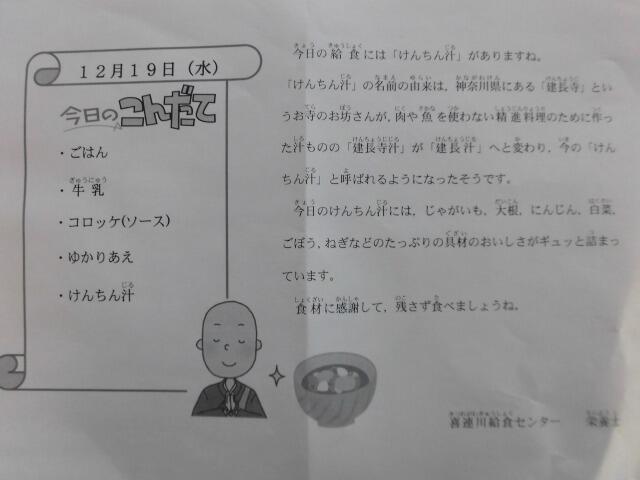 12月19日（水）
今日のこんだて
・ごはん
・牛乳
・コロッケ(ソース)
・ゆかりあえ
・けんちん汁
今日の給食には「けんちん汁」がありますね。
「けんちん汁」の名前の由来は，神奈川県にある「建長寺」とい
うお寺のお坊さんが，肉や魚を使わない精進料理のために作っ
た汁ものの「建長寺汁」が「建長汁」へと変わり，今の「けん
ちん汁」と呼ばれるようになったそうです。
今日のけんちん汁には，じゃがいも，大根，にんじん，白菜，
ごぼう，ねぎなどのたっぷりの具材のおいしさがギュッと詰まっ
ています。
食材に感謝して，残さず食べましょうね。
喜連川給食センター　栄養士